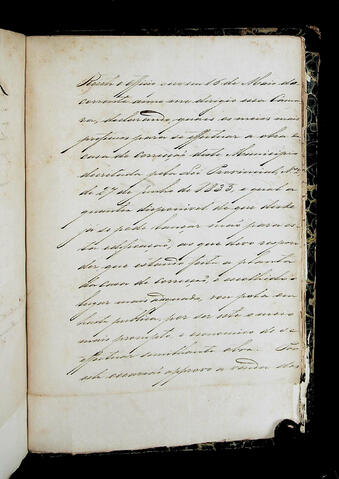 officio em 16 de Maio do
corrente anno me dirigio essa Cama-
ra, declarando quaes os meios mais
para se effectuar a obra da
casa de correcção deste Municipio
decretada pela Lei Provincial, Nº
de 27 de Junho de 1835, e qual a
quantia disponivel de que desde
já se pode lançar mão para es-
ta edificação, ao que devo respon-
der que estando feita a planta
da casa de correcção, e escolhido o
lugar mais adequado, em
hasta publica, por ser este o meio
mais prompto, e economico de se
effectuar semelhante obra.
esta occasião approvo a venda das